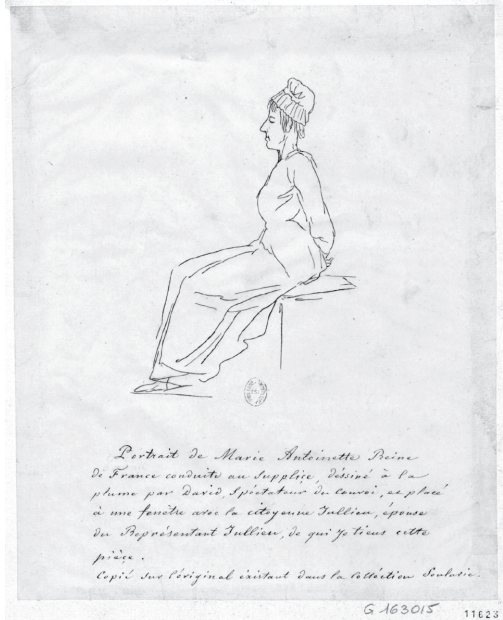 Portrait de Marie Antoinette Reine
de France conduite au Supplice, déssiné à la
plume par David, Spectateur du Convoi, et placé
à une fenêtre avec la citoyenne Jullien, épouse
du Représentant Jullien, de qui je tiens cette
pièce.
Copié sur l'original éxistant dans la Colléction Soulavie.
G 163015
11623